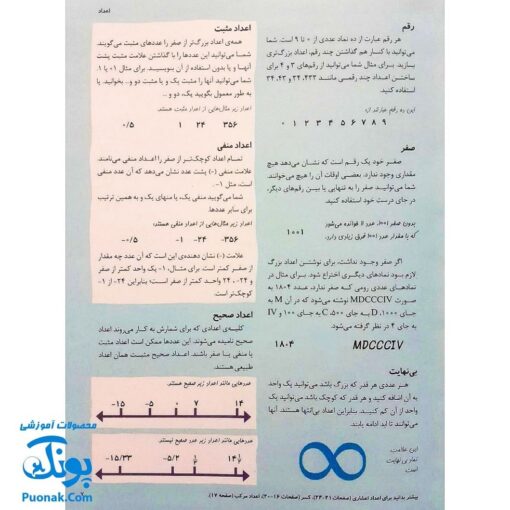 اعداد
رقم
هر رقم عبارت از ده نماد عددی از ۰ تا ۹ است. شما
می‌توانید با کنار هم گذاشتن چند رقم، اعداد بزرگ‌تری
بسازید. برای مثال شما می‌توانید از رقم‌های ۳ و ۴ برای
ساختن اعداد چند رقمی مانند ۴۳۳، ۳۴ و ۴۳، ۳۴
این ده رقم عبارتند از:
۰ ۱ ۲ ۳ ۴ ۵ ۶ ۷ ۸ ۹
صفر
صفر خود یک رقم است که نشان می‌دهد هیچ
مقداری وجود ندارد. بعضی اوقات آن را هیچ می‌خوانند.
شما می‌توانید صفر را به تنهایی یا بین رقم‌های دیگر،
در جای درست خود استفاده کنید.
بدون صفر ۱۰۰۱، عدد ۱۱ خوانده می‌شود
که با مقدار عدد ۱۰۰۱ فرق زیادی دارد.
۱۰۰۱
اگر صفر وجود نداشت، برای نوشتن اعداد بزرگ
لازم بود نمادهای دیگری اختراع شود. برای مثال در
نمادهای عددی رومی که صفر ندارد، عدد ۱۸۰۴ به
صورت MDCCCIV نوشته می‌شود که در آن M به
جای ۱۰۰۰، D به جای ۵۰۰، C به جای ۱۰۰ و IV
به جای ۴ در نظر گرفته می‌شود.
۱۸۰۴ MDCCCIV
بی‌نهایت
هر عددی هر قدر که بزرگ باشد می‌توانید یک واحد
به آن اضافه کنید و هر قدر که کوچک باشد می‌توانید یک
واحد از آن کم کنید. بنابراین اعداد بی‌انتها هستند. آنها
می‌توانند تا ابد ادامه یابند.
این علامت
نماد بی‌نهایت
است
اعداد مثبت
همه‌ی اعداد بزرگ‌تر از صفر را عددهای مثبت می‌گویند.
شما می‌توانید این عددها را با گذاشتن علامت مثبت پشت
آنها و یا بدون استفاده از آن بنویسید. برای مثال ۱+ یا ۱.
شما می‌توانید آنها را مثبت یک و یا مثبت دو و... بخوانید. یا
به طور معمول بگویید یک، دو و ...
اعداد زیر مثال‌هایی از اعداد مثبت هستند:
۰/۵ ۱ ۲۴ ۳۵۶
اعداد منفی
تمام اعداد کوچک‌تر از صفر را اعداد منفی می‌نامند.
علامت منفی (-) پشت عدد نشان می‌دهد که آن عدد منفی
است، مثل ۱-.
شما می‌گویید منفی یک، یا منهای یک و به همین ترتیب
برای سایر عددها.
اعداد زیر مثال‌هایی از اعداد منفی هستند:
-۰/۵ -۱ -۲۴ -۳۵۶
علامت (-) نشان دهنده‌ی این است که آن عدد چه مقدار
از صفر کمتر است. برای مثال، ۱- یک واحد کمتر از صفر
و ۲۴-، ۲۴ واحد کمتر از صفر است؛ بنابراین ۲۴- از ۱-
کوچک‌تر است.
اعداد صحیح
کلیه‌ی اعدادی که برای شمارش به کار می‌روند اعداد
صحیح نامیده می‌شوند. این عددها ممکن است اعداد مثبت
یا منفی یا صفر باشند. اعداد صحیح مثبت همان اعداد
طبیعی هستند.
عددهایی مانند اعداد زیر صحیح هستند.
-۱۵ -۵ ۰ ۷ ۱۴
عددهایی مانند اعداد زیر عدد صحیح نیستند.
-۱۵/۳۳ -۵/۲
بیشتر بدانید برای اعداد اعشاری (صفحات ۲۱-۲۳)، کسر (صفحات ۱۶-۲۰)، اعداد مرکب (صفحه ۱۷).
محصولات آموزشی
پونک
Puonak.com